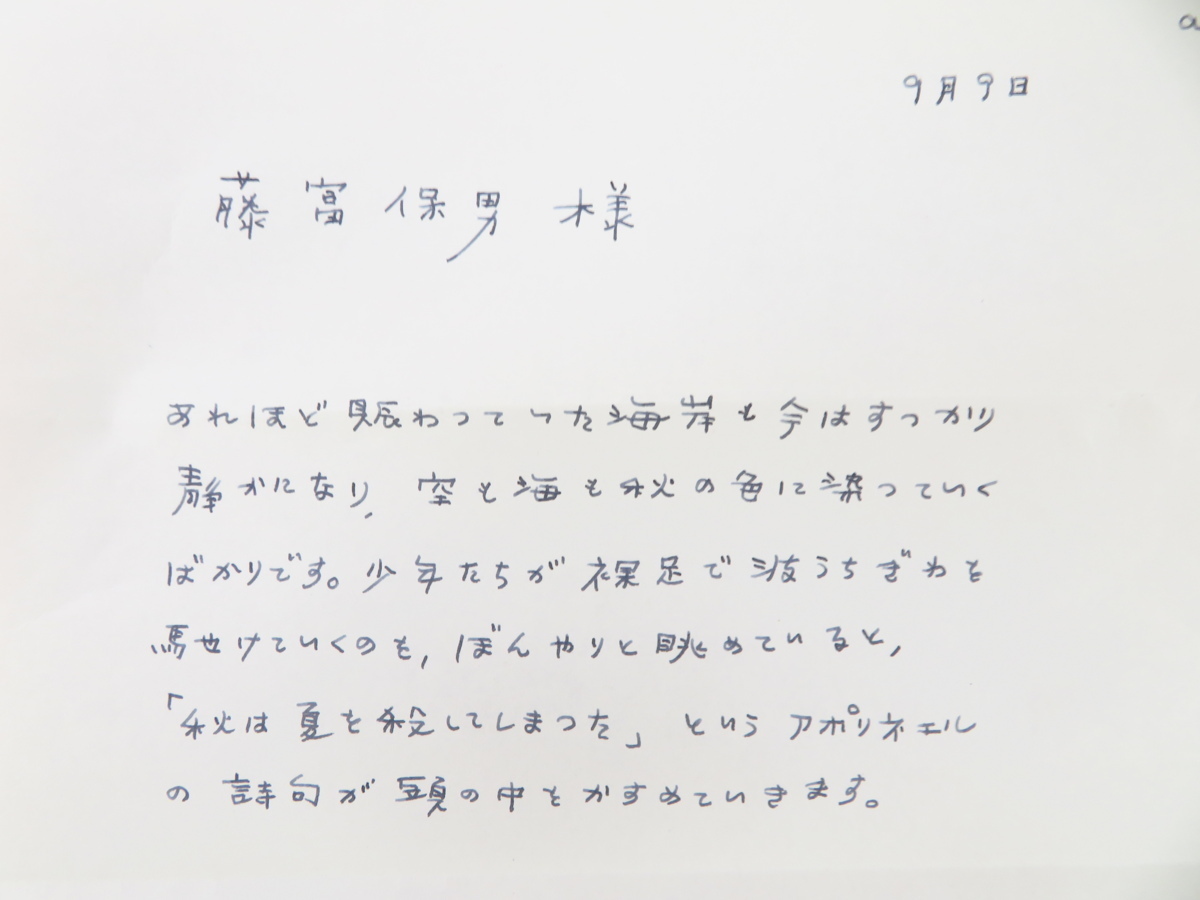 9月9日
藤富保男 様
あれほど賑わっていた海岸も今はすっかり
静かになり、空も海も秋の色に染っていく
ばかりです。少年たちが裸足で波うちぎわを
馳せけていくのを、ぼんやりと眺めていると、
「秋は夏を殺してしまった」というアポリネエル
の詩句が頭の中をかすめていきます。